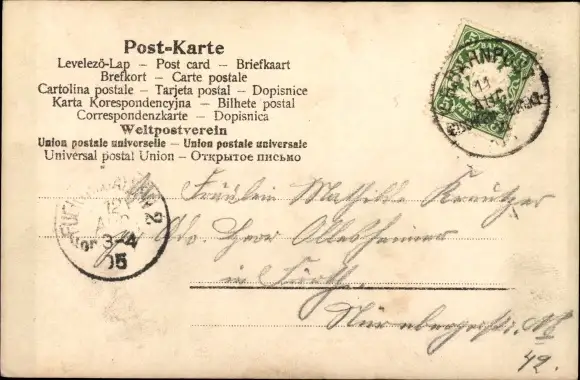 Post-Karte
Levelező-Lap – Post card – Briefkaart
Brefkort – Carte postale
Cartolina postale – Tarjeta postal – Dopisnice
Karta Korespondencyjna – Bilhete postal
Correspondenzkarte – Dopisnica
Weltpostverein
Union postale universelle – Union postale universale
Universal postal Union – Открытое письмо
BAHNPOST
11
AUG
3-4
05
An Fräulein Mathilde Kreutzer
Ado. Herr Ollesheimer
in Fürth.
Nürnbergerstr. No
49.